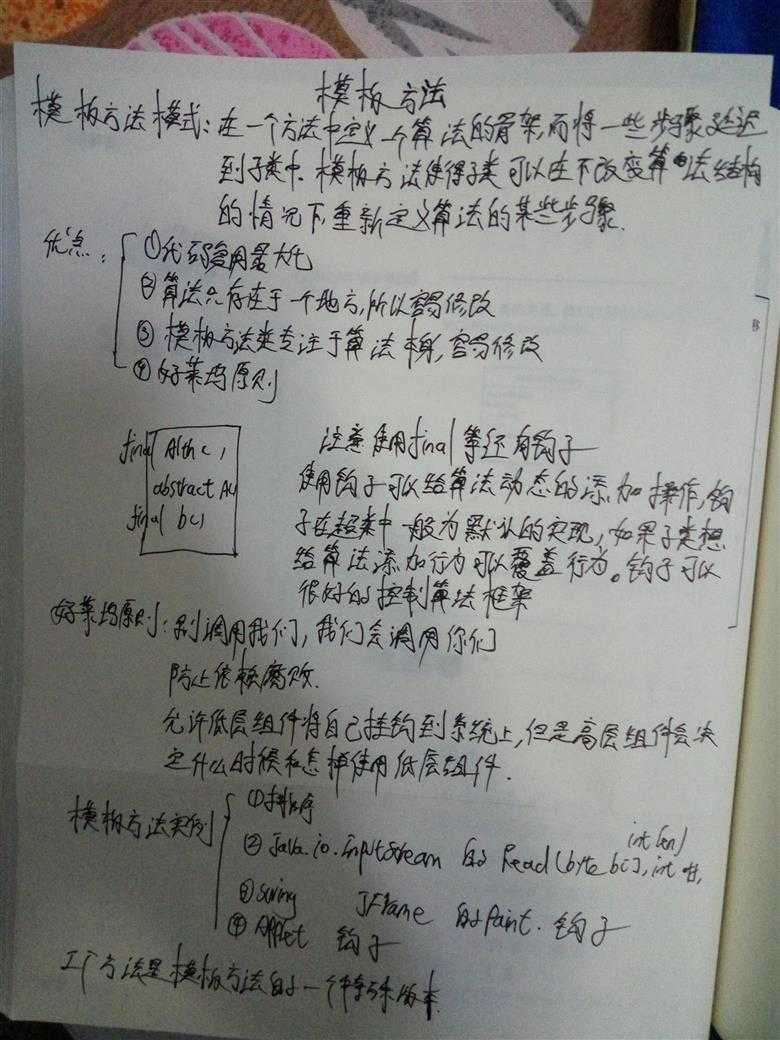 模板方法
模板方法模式:在一个方法中定义一个算法的骨架,而将一些步骤延迟
到子类中.模板方法使得子类可以在不改变算法结构
的情况下,重新定义算法的某些步骤.
优点:
①代码复用最大化
②算法只存在于一个地方,所以容易修改
③模板方法类专注于算法本身,容易修改
④好莱坞原则
final Alth()
abstract A()
final b()
注意使用final 等还有钩子
使用钩子可以给算法动态的添加操作,钩
子在超类中一般为默认的实现,如果子类想
给算法添加行为可以覆盖行为。钩子可以
很好的控制算法框架
好莱坞原则:别调用我们,我们会调用你们
防止依赖腐败.
允许低层组件将自己挂钩到系统上,但是高层组件会决
定什么时候和怎样使用低层组件.
模板方法实例
①排序
②Java.io.InputStream 的 Read(byte b[], int
int len)
③swing JFrame 的Paint. 钩子
④Applet 钩子
工厂方法是模板方法的一个特殊版本.